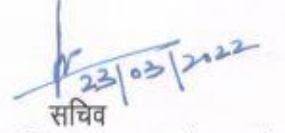 23/03/2022
सचिव